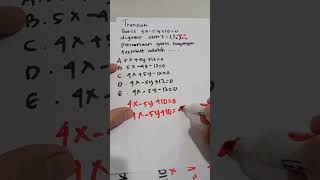 Translasi
Garis 4x-5y+10=0
digeser oleh T =
persamaan garis bayangan
tersebut adalah ....
A. 5x+4y+12=0
B. 5x-4y-12=0
C. 4x+5y-12=0
D. 4x-5y+12=0
E. 4x-5y-12=0
4x-5y+10=0
4x-5y+10=